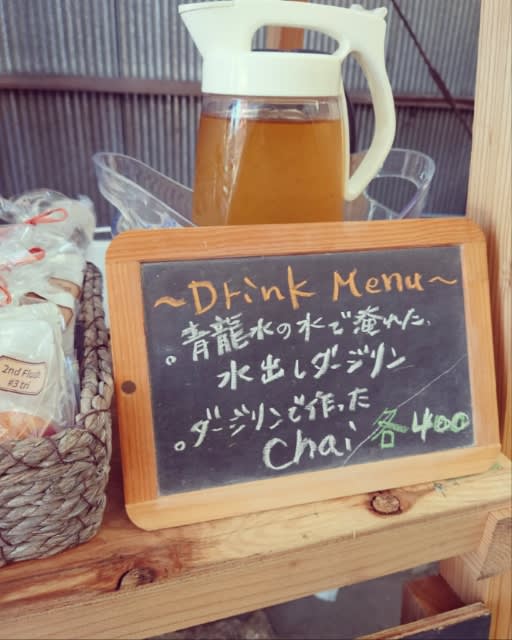 ~Drink Menu~
。青龍水の水で淹れた、
水出しダージリン
。ダージリンで作った
Chai 各400
2nd Flush
#3 tri